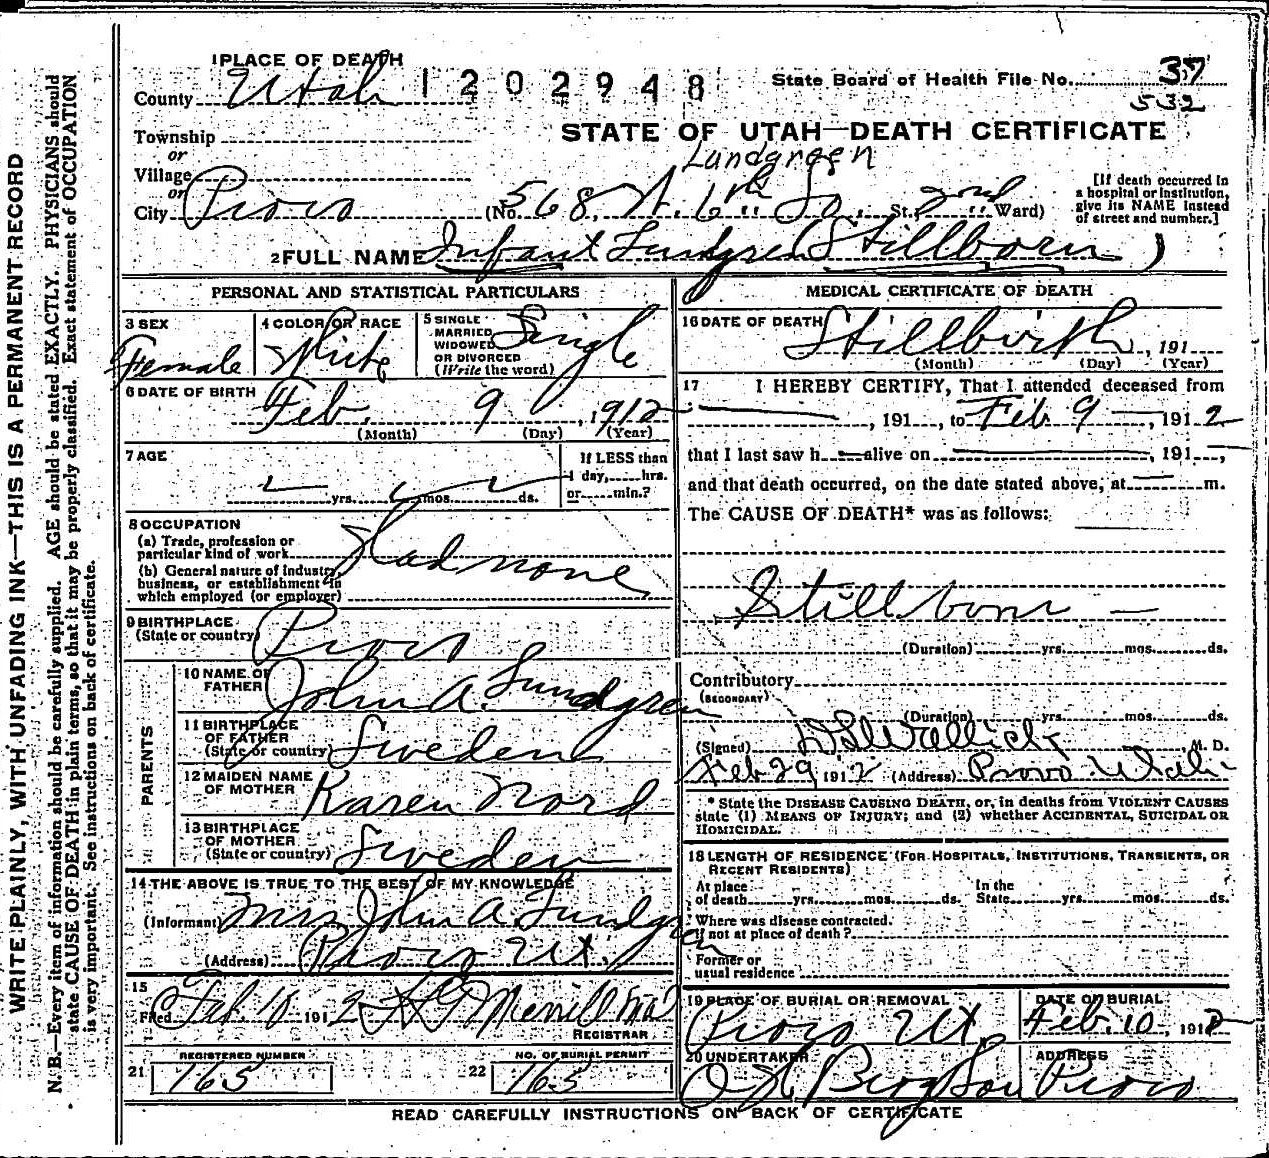 1 PLACE OF DEATH
County Utah
1202948
State Board of Health File No. 37
532
Township
or
Village
or
City Provo
STATE OF UTAH—DEATH CERTIFICATE
Lundgreen
(No. 568. W. 6th So. St., 2nd Ward)
[If death occurred in
a hospital or institution,
give its NAME instead
of street and number.]
2 FULL NAME Infant Lundgren Stillborn )
PERSONAL AND STATISTICAL PARTICULARS
3 SEX
Female
4 COLOR OR RACE
White
5 SINGLE
MARRIED
WIDOWED
OR DIVORCED
(Write the word)
Single
6 DATE OF BIRTH
Feb. 9, 1912
(Month) (Day) (Year)
7 AGE
yrs. mos. ds.
If LESS than
1 day, hrs.
or min.?
8 OCCUPATION
(a) Trade, profession or
particular kind of work
(b) General nature of industry,
business, or establishment in
which employed (or employer)
Had none
9 BIRTHPLACE
(State or country)
Provo
PARENTS
10 NAME OF
FATHER
John A. Lundgren
11 BIRTHPLACE
OF FATHER
(State or country)
Sweden
12 MAIDEN NAME
OF MOTHER
Karen Nord
13 BIRTHPLACE
OF MOTHER
(State or country)
Sweden
14 THE ABOVE IS TRUE TO THE BEST OF MY KNOWLEDGE
(Informant) Mrs John A. Lundgren
(Address) Provo Ut.
15
Filed Feb. 10 1912 Merrill
REGISTRAR
REGISTERED NUMBER
21 165
NO. OF BURIAL PERMIT
22 165
MEDICAL CERTIFICATE OF DEATH
16 DATE OF DEATH
Stillbirth, 191
(Month) (Day) (Year)
17 I HEREBY CERTIFY, That I attended deceased from
, 191, to Feb 9 1912
that I last saw h alive on , 191,
and that death occurred, on the date stated above, at m.
The CAUSE OF DEATH* was as follows:
Stillborn —
(Duration) yrs. mos. ds.
Contributory
(SECONDARY)
(Duration) yrs. mos. ds.
(Signed) M. D.
Feb 29 1912 (Address) Provo Utah
* State the DISEASE CAUSING DEATH, or, in deaths from VIOLENT CAUSES
state (1) MEANS OF INJURY; and (2) whether ACCIDENTAL, SUICIDAL OR
HOMICIDAL.
18 LENGTH OF RESIDENCE (FOR HOSPITALS, INSTITUTIONS, TRANSIENTS, OR
RECENT RESIDENTS)
At place
of death yrs. mos. ds.
In the
State yrs. mos. ds.
Where was disease contracted.
if not at place of death?
Former or
usual residence
19 PLACE OF BURIAL OR REMOVAL
Provo Ut.
DATE OF BURIAL
Feb. 10, 1912
20 UNDERTAKER
ADDRESS
Provo
READ CAREFULLY INSTRUCTIONS ON BACK OF CERTIFICATE
WRITE PLAINLY, WITH UNFADING INK—THIS IS A PERMANENT RECORD
N. B.—Every item of information should be carefully supplied. AGE should be stated EXACTLY. PHYSICIANS should
state CAUSE OF DEATH in plain terms, so that it may be properly classified. Exact statement of OCCUPATION
is very important. See instructions on back of certificate.